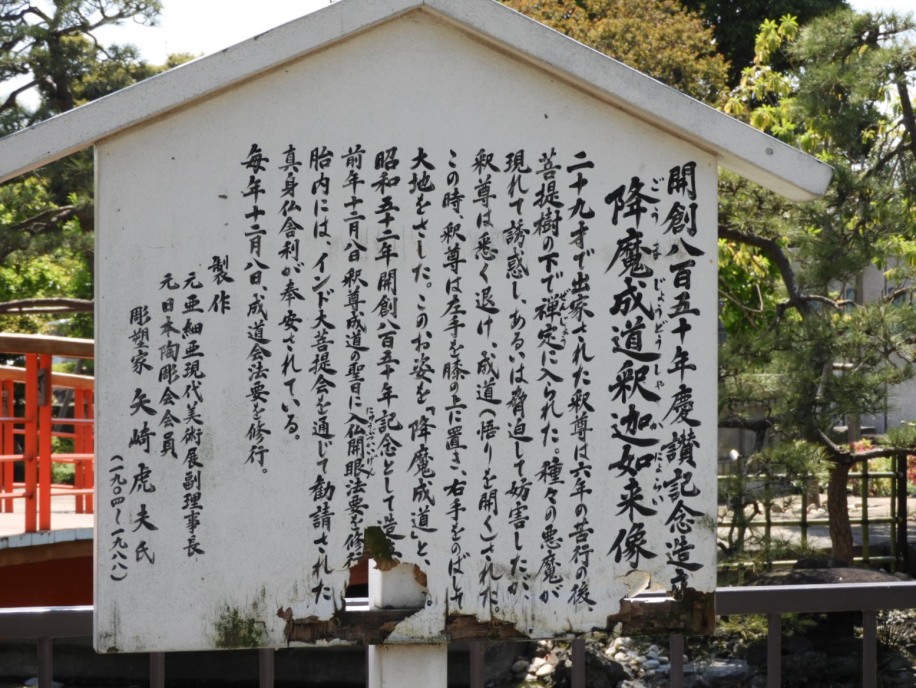 開創八百五十年慶讃記念造立
降魔成道釈迦如来像
ごうまじょうどうしゃかにょらい
二十九才で出家された釈尊は六年の苦行の後
菩提樹の下で禅定に入られた。種々の悪魔が
ぜんじょう
現れて誘惑し、あるいは脅迫して妨害したが、
釈尊は悉く退け、成道(悟りを開く)された。
この時、釈尊は左手を膝の上に置き、右手をのばし
大地をさした。このお姿を「降魔成道」と
昭和五十二年開創八百五十年記念として造
前年十二月八日釈尊成道の聖日に入仏開眼法要を修行
にゅうぶつかいげん
胎内には、インド大菩提会を通じて勧請された
真身仏舎利が奉安されている。
毎年十二月八日、成道会法要を修行。
製作
元亜細亜現代美術展副理事長
元日本陶彫会会員
彫塑家 矢崎虎夫氏
(一九〇四〜一九八八)